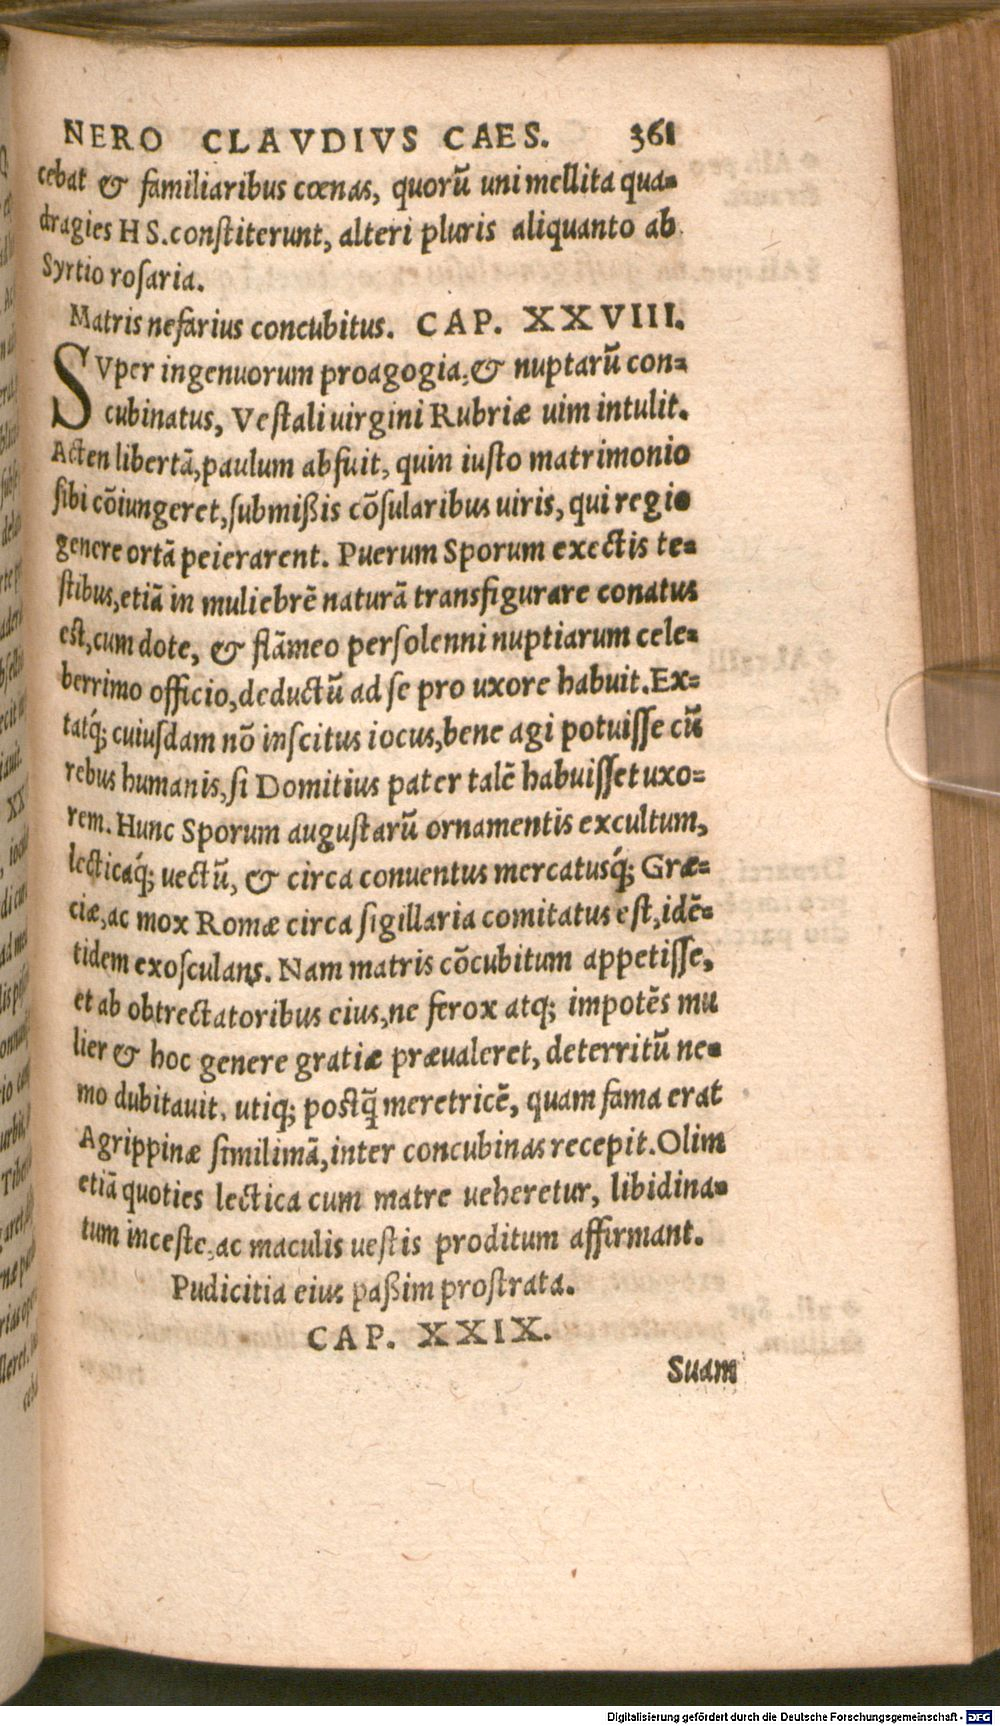 NERO CLAVDIVS CAES. 361
cebat & familiaribus cœnas, quorũ uni mellita qua-
dragies HS. constiterunt, alteri pluris aliquanto ab
Syrtio rosaria.
Matris nefarius concubitus. CAP. XXVIII.
SVper ingenuorum proagogia, & nuptarũ con-
cubinatus, Vestali uirgini Rubriæ uim intulit.
Acten libertã, paulum abfuit, quin iusto matrimonio
sibi cõiungeret, submißis cõsularibus uiris, qui regio
genere ortã peierarent. Puerum Sporum exectis te-
stibus, etiã in muliebrẽ naturã transfigurare conatus
est, cum dote, & flãmeo persolenni nuptiarum cele-
berrimo officio, deductũ ad se pro uxore habuit. Ex-
tatq́; cuiusdam nõ inscitus iocus, bene agi potuisse cũ
rebus humanis, si Domitius pater talẽ habuisset uxo-
rem. Hunc Sporum augustarũ ornamentis excultum,
lecticaq́; uectũ, & circa conuentus mercatusq́; Græ-
ciæ, ac mox Romæ circa sigillaria comitatus est, idẽ-
tidem exosculans. Nam matris cõcubitum appetisse,
et ab obtrectatoribus eius, ne ferox atq; impotẽs mu
lier & hoc genere gratiæ præualeret, deterritũ ne-
mo dubitauit, utiq; postq̃ meretricẽ, quam fama erat
Agrippinæ similimã, inter concubinas recepit. Olim
etiã quoties lectica cum matre ueheretur, libidina-
tum inceste, ac maculis uestis proditum affirmant.
Pudicitia eius paßim prostrata.
CAP. XXIX.
Suam
Digitalisierung gefördert durch die Deutsche Forschungsgemeinschaft - DFG